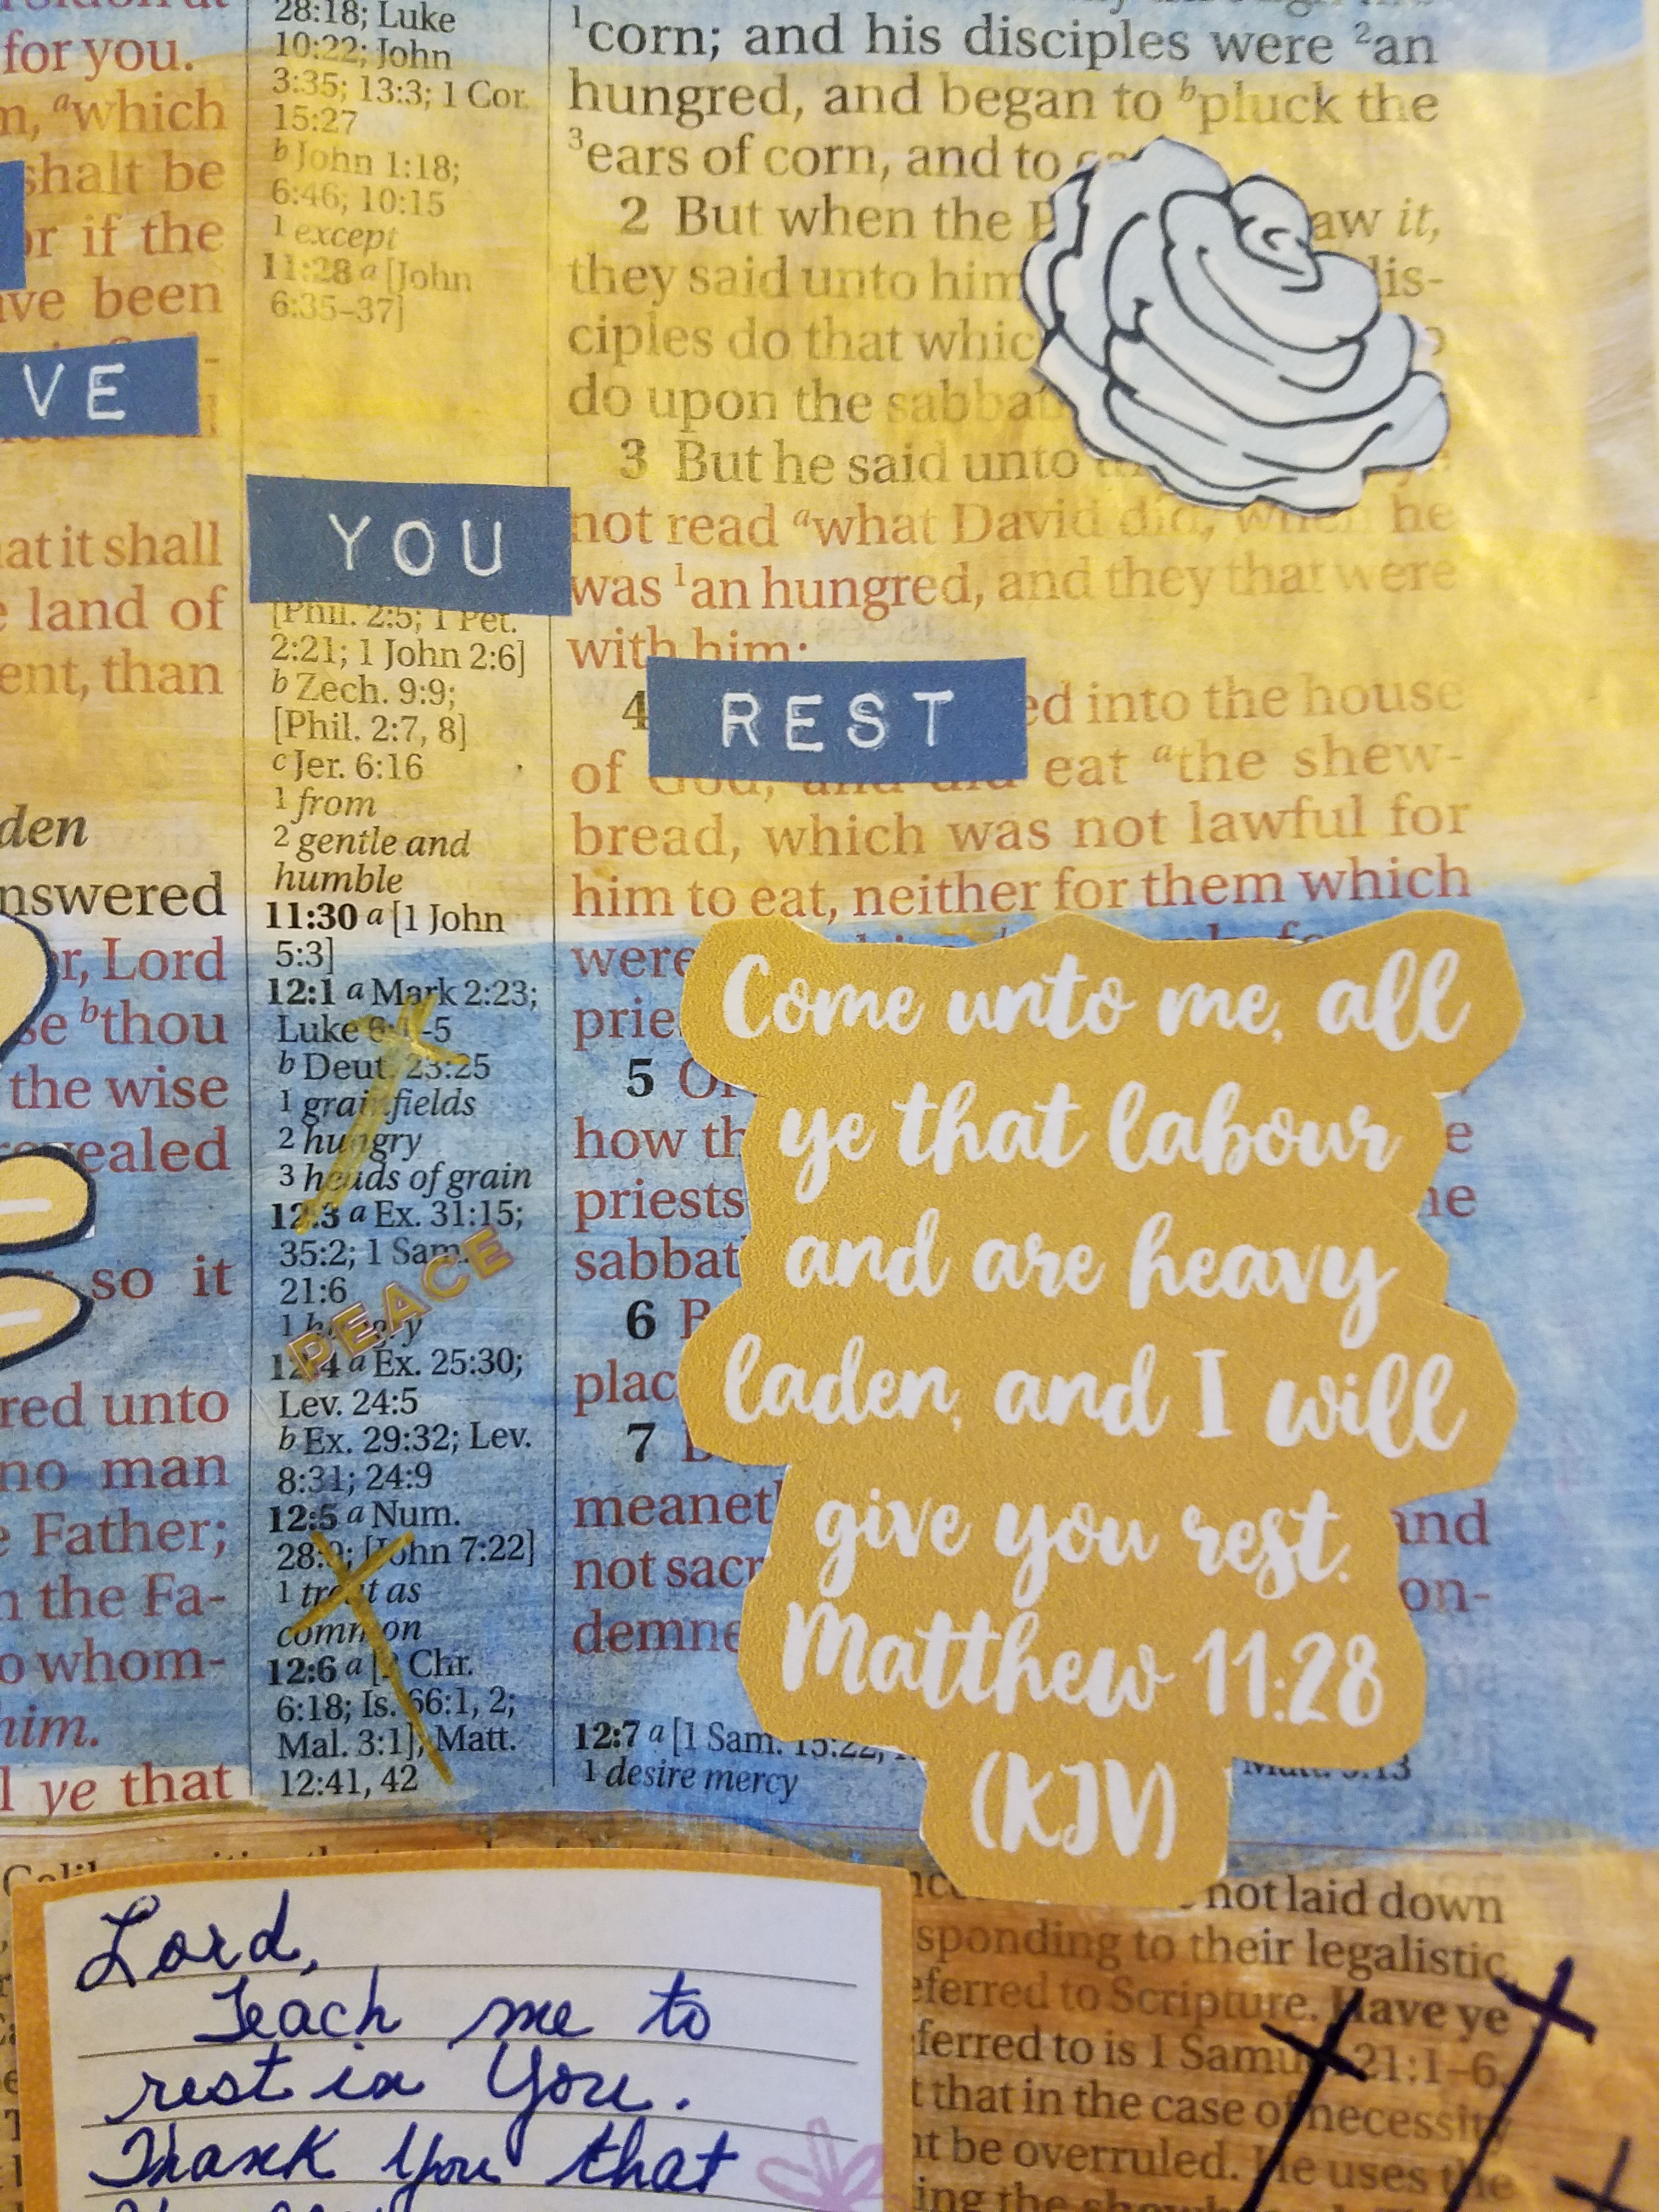 for you.
m, ᵃwhich
shalt be
or if the
ave been
VE
at it shall
e land of
ent, than
den
nswered
r, Lord
se ᵇthou
the wise
revealed
so it
red unto
no man
e Father;
n the Fa-
o whom-
him.
l ye that
28:18; Luke
10:22; John
3:35; 13:3; 1 Cor.
15:27
b John 1:18;
6:46; 10:15
1 except
11:28 a [John
6:35–37]
YOU
[Phil. 2:5; 1 Pet.
2:21; 1 John 2:6]
b Zech. 9:9;
[Phil. 2:7, 8]
c Jer. 6:16
1 from
2 gentle and
humble
11:30 a [1 John
5:3]
12:1 a Mark 2:23;
Luke 6:1-5
b Deut. 23:25
1 grainfields
2 hungry
3 heads of grain
12:3 a Ex. 31:15;
35:2; 1 Sam.
21:6
1 hungry
PEACE
12:4 a Ex. 25:30;
Lev. 24:5
b Ex. 29:32; Lev.
8:31; 24:9
12:5 a Num.
28:9; [John 7:22]
1 treat as
common
12:6 a [2 Chr.
6:18; Is. 66:1, 2;
Mal. 3:1]; Matt.
12:41, 42
¹corn; and his disciples were ²an
hungred, and began to ᵇpluck the
³ears of corn, and to
2 But when the aw it,
they said unto him dis-
ciples do that whic
do upon the sabbat
3 But he said unto
not read ᵃwhat David did, when he
was ¹an hungred, and they that were
with him;
REST
4 ed into the house
of God, and did eat ᵃthe shew-
bread, which was not lawful for
him to eat, neither for them which
were
prie
5 Or
how th e
priests he
sabbat
6 B
plac
7 B
meanet and
not sacr on-
demne
12:7 a [1 Sam. 15:22;
1 desire mercy
Come unto me, all
ye that labour
and are heavy
laden, and I will
give you rest.
Matthew 11:28
(KJV)
Lord,
Teach me to
rest in You.
Thank You that
not laid down
sponding to their legalistic
eferred to Scripture. Have ye
ferred to is 1 Samu 21:1–6.
t that in the case of necessity
nt be overruled. He uses the
ing the